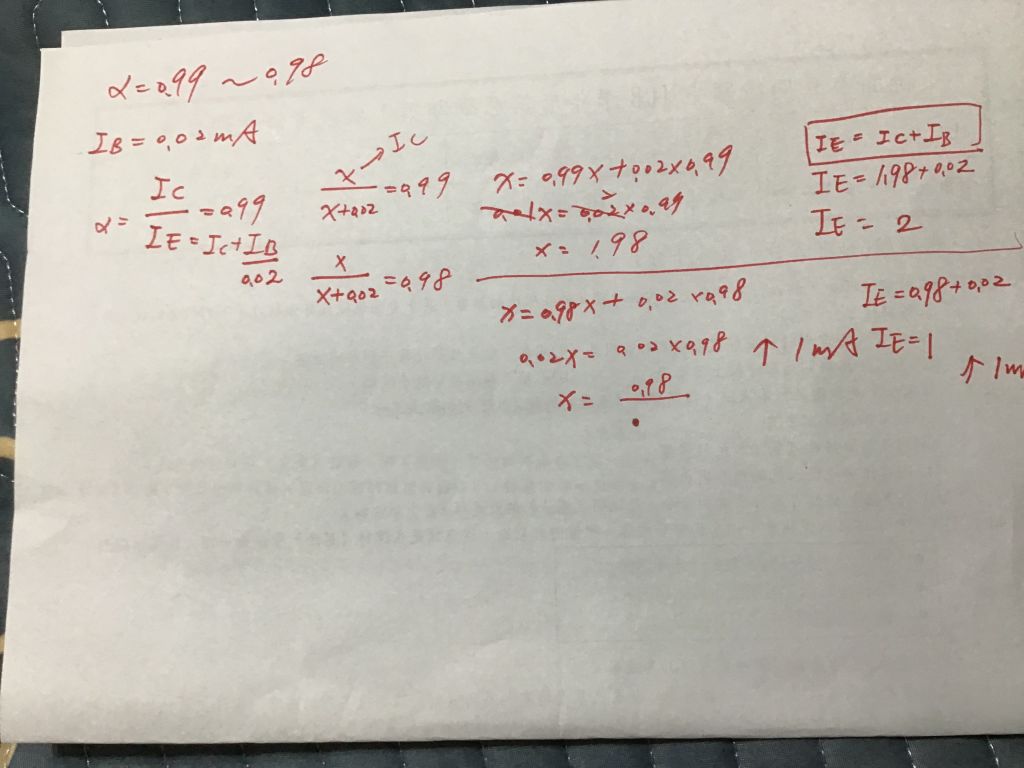 α=0.99 ~ 0.98
IB = 0.02mA
α = IC / IE = IC+IB = 0.99
0.02
x / x+0.02 = 0.99
→ IC
x / x+0.02 = 0.98
x = 0.99x + 0.02×0.99
0.01x = 0.02×0.99
2
x = 1.98
IE = IC+IB
IE = 1.98+0.02
IE = 2
x = 0.98x + 0.02×0.98
0.02x = 0.02×0.98
x = 0.98
↑ 1mA
IE = 0.98+0.02
IE = 1
↑ 1m